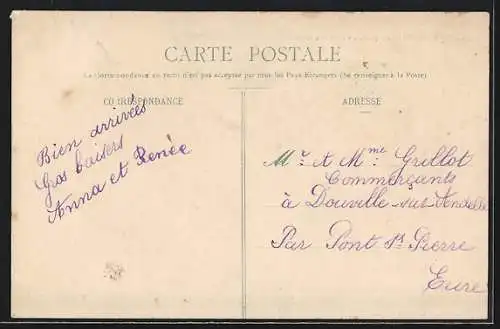 CARTE POSTALE
La Correspondance au recto n'est pas acceptée par tous les Pays Etrangers (Se renseigner à la Poste)
CORRESPONDANCE
ADRESSE
Bien arrivées
Gros baisers
Anna et Renée
Mr et Mme Grillot
Commerçants
à Douville sur Andelle
Par Pont St Pierre
Eure